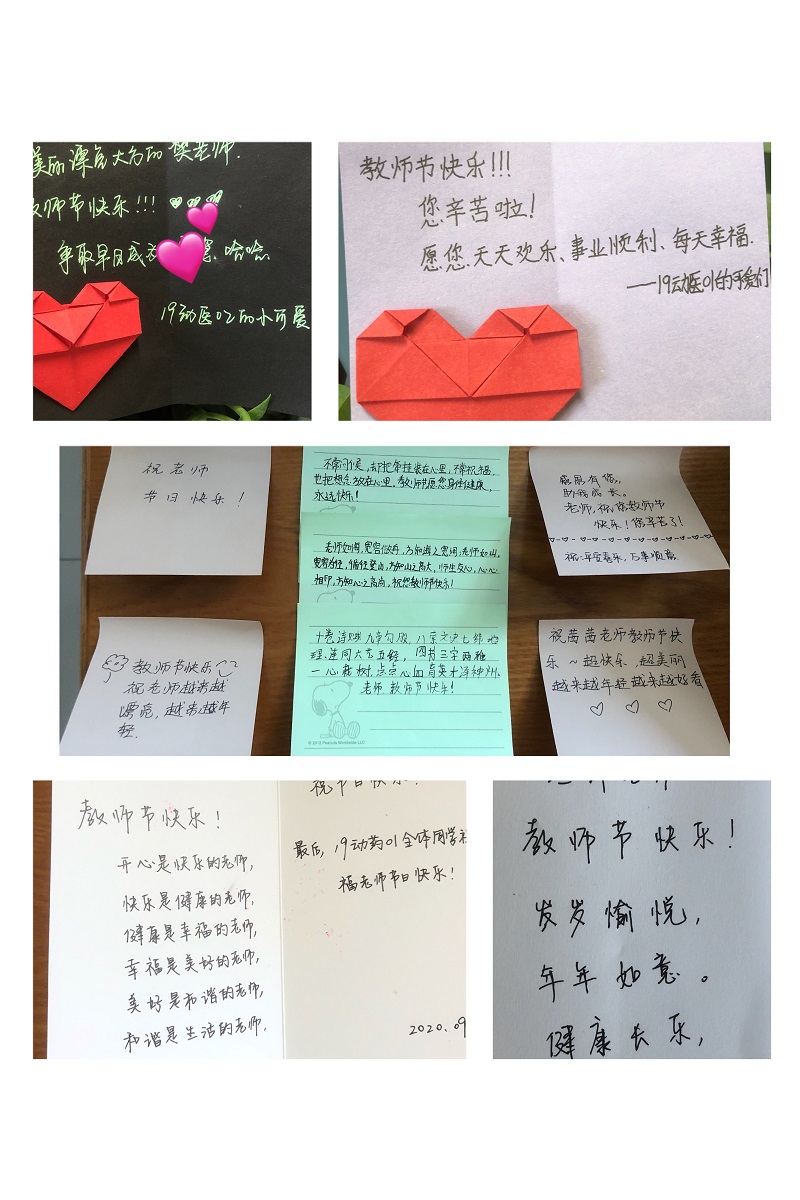 美丽漂亮大方的樊老师.
教师节快乐!!!
争取早日成为
哈哈
19动医02的小可爱
教师节快乐!!!
您辛苦啦!
愿您天天欢乐、事业顺利、每天幸福.
——19动医01的可爱们
祝老师
节日快乐!
不常问候,却把牵挂装在心里,不常祝福,
也把想念放在心里。教师节愿您身体健康,
永远快乐!
老师如海,宽容做舟,方知海之宽阔;老师如山,
宽容为径,循径登山,方知山之高大,师生交心,心心
相印,方知心之高尚,祝您教师节快乐!
十卷诗赋九章勾股,八索文史七纬地
理,连同六艺五经,四书三字两雅
一心栽树,点点心血育英才泽神州。
老师 教师节快乐!
© 2012 Peanuts Worldwide LLC
感恩有您,
助我成长。
老师,祝您教师节
快乐!您辛苦了!
祝:平安喜乐,万事顺意
教师节快乐
祝老师越来越
漂亮,越来越年
轻.
祝茜茜老师教师节快
乐~超快乐,超美丽
越来越年轻越来越好看
教师节快乐!
开心是快乐的老师,
快乐是健康的老师,
健康是幸福的老师,
幸福是美好的老师,
美好是和谐的老师,
和谐是生活的老师.
祝节日快乐!
最后,19动药01全体同学祝
福老师节日快乐!
2020.09
教师节快乐!
岁岁愉悦,
年年如意。
健康长乐,